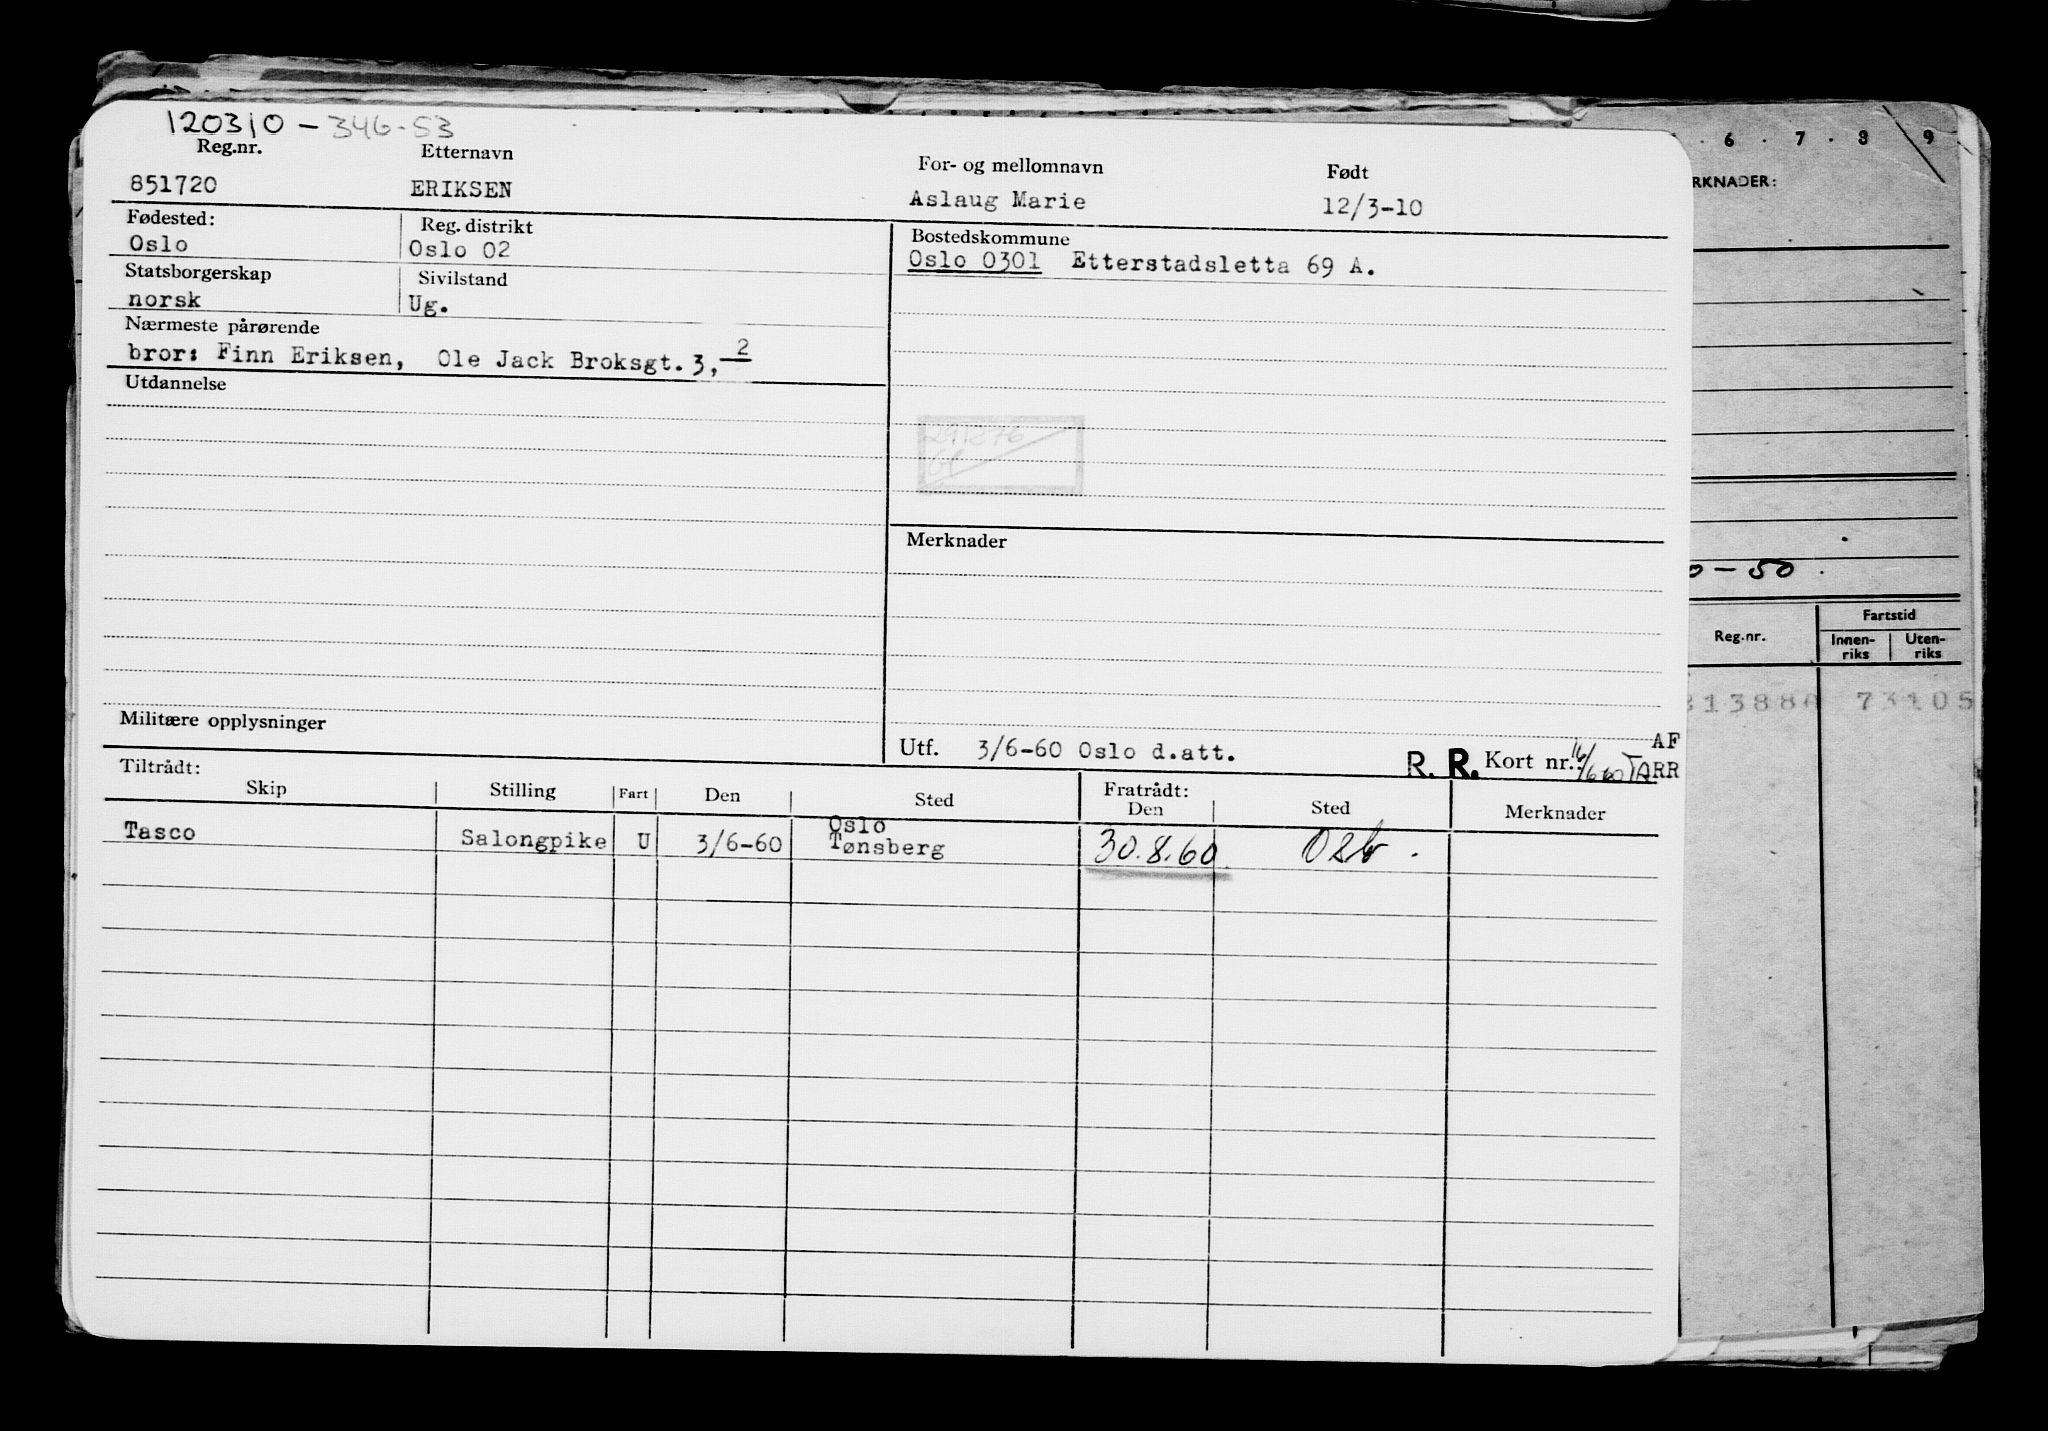 120310 - 346-53
Reg.nr. Etternavn For- og mellomnavn Født
851720 ERIKSEN Aslaug Marie 12/3-10
Fødested: Reg. distrikt Bostedskommune
Oslo Oslo 02 Oslo 0301 Etterstadsletta 69 A.
Statsborgerskap Sivilstand
norsk Ug.
Nærmeste pårørende
bror: Finn Eriksen, Ole Jack Broksgt. 3, 2
Utdannelse
Merknader
Militære opplysninger
Utf. 3/6-60 Oslo d.att. R. R. Kort nr.: AF
TARR
Tiltrådt: Fratrådt:
Skip Stilling Fart Den Sted Den Sted Merknader
Tasco Salongpike U 3/6-60 Oslo Tønsberg 30.8.60 Oslo.
6 . 7 . 8 . 9
RKNADER:
0-50.
Reg.nr. Fartstid
Innen-riks Uten-riks
73105